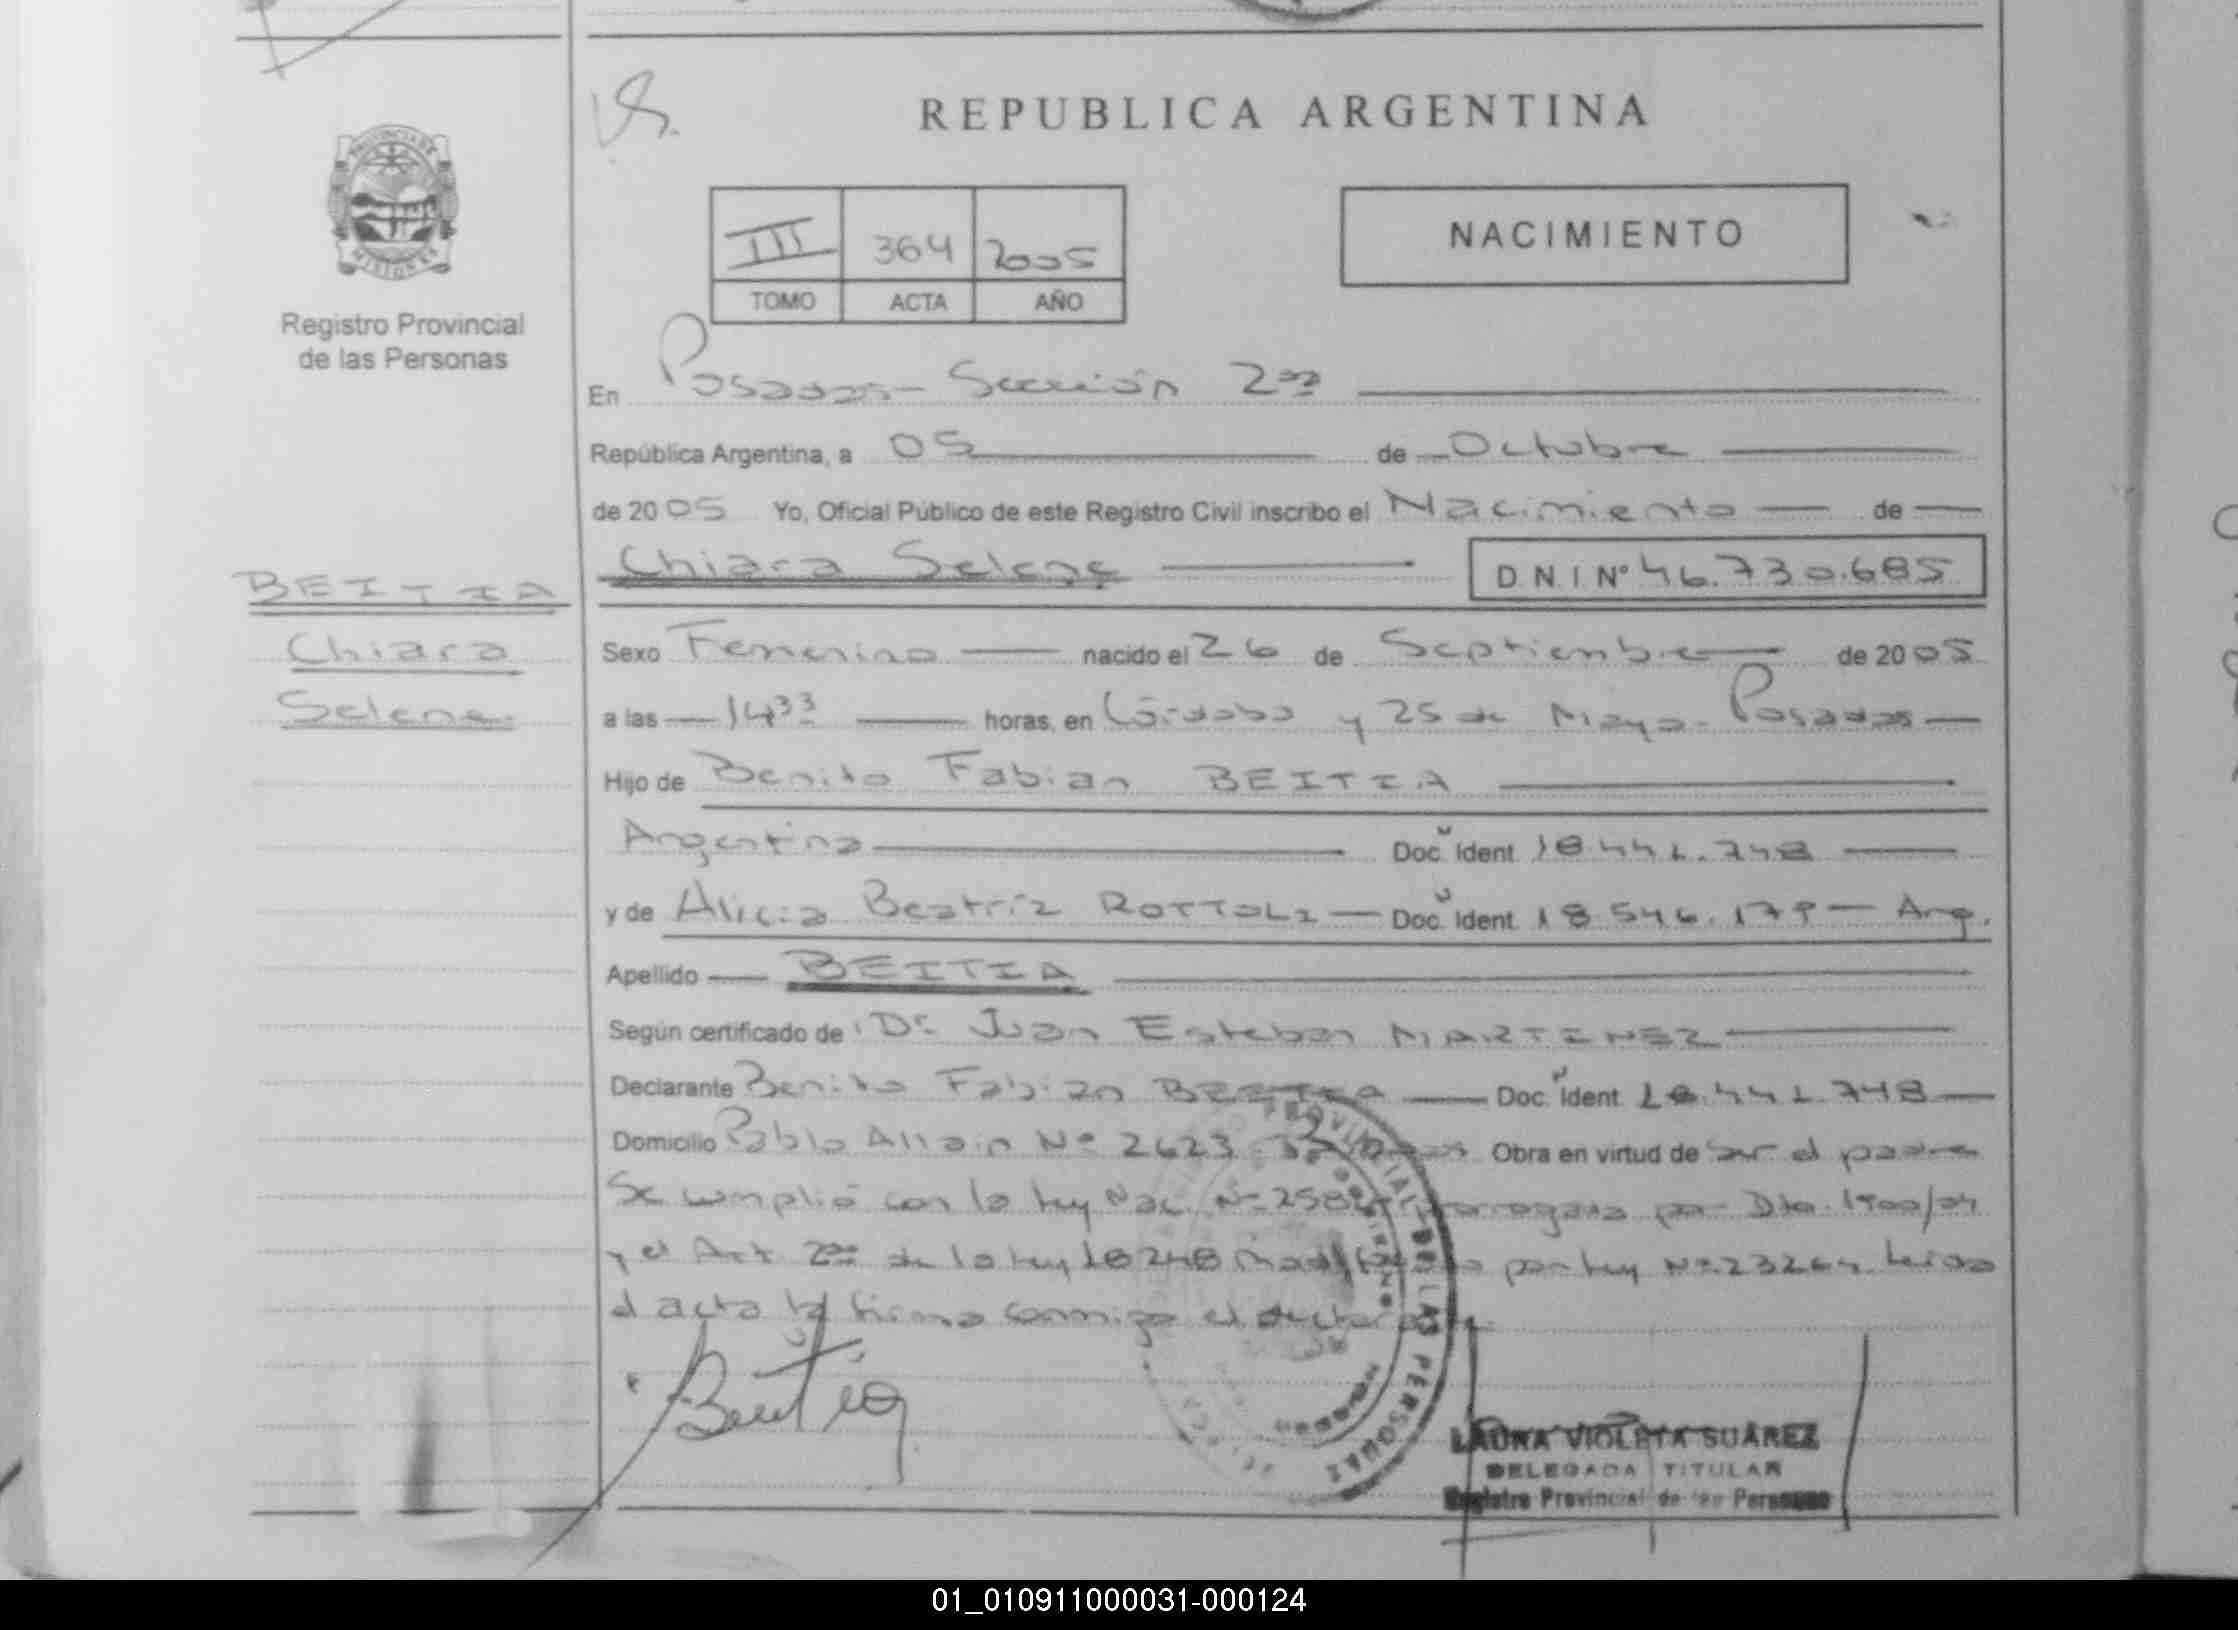 REPUBLICA ARGENTINA
PROVINCIA DE MISIONES
Registro Provincial
de las Personas
III 364 2005
TOMO ACTA AÑO
NACIMIENTO
En Posadas - Sección 2da
República Argentina, a 05 de Octubre
de 2005 Yo, Oficial Público de este Registro Civil inscribo el Nacimiento de
Chiara Selene D N I Nº 46.730.685
BEITIA
Chiara
Selene
Sexo Femenino nacido el 26 de Septiembre de 2005
a las 14 33 horas, en Córdoba y 25 de Mayo - Posadas
Hijo de Benito Fabian BEITIA
Argentino Doc. Ident. 18.441.748
y de Alicia Beatríz ROTTOLI Doc. Ident. 18.546.179 - Arg.
Apellido BEITIA
Según certificado de Dr. Juan Esteban MARTINEZ
Declarante Benito Fabian BEITIA Doc. Ident. 18.441.748
Domicilio Pablo Allain Nº 2623 - Posadas Obra en virtud de ser el padre
Se cumplió con la ley Nac. Nº prorrogada por Dto. 1900/04
y el Art 2do de la ley 18248 modificado por ley Nº 23264. Leida
el acta la firma conmigo el declarante.
Beitia
REGISTRO PROVINCIAL DE LAS PERSONAS
LAURA VIOLETA SUÁREZ
DELEGADA TITULAR
Registro Provincial de las Personas
01_010911000031-000124